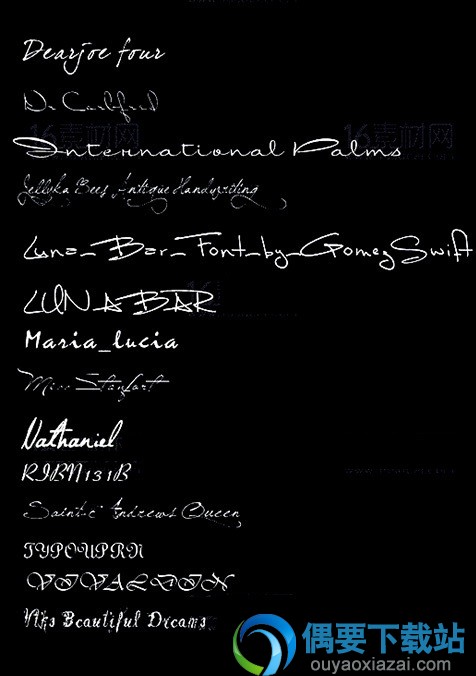 Dearjoe four
16素材网
International Palms
Jellyka Bees Antique Handwriting
Luna_Bar_Font_by_GomezSwift
LUNABAR
Maria_lucia
Miss Stanfort
Nathaniel
RIBN131B
Saint-c Andrews Queen
TYPOUPRN
VIVALDIN
Vtks Beautiful Dreams
偶要下载站
ouyaoxiazai.com